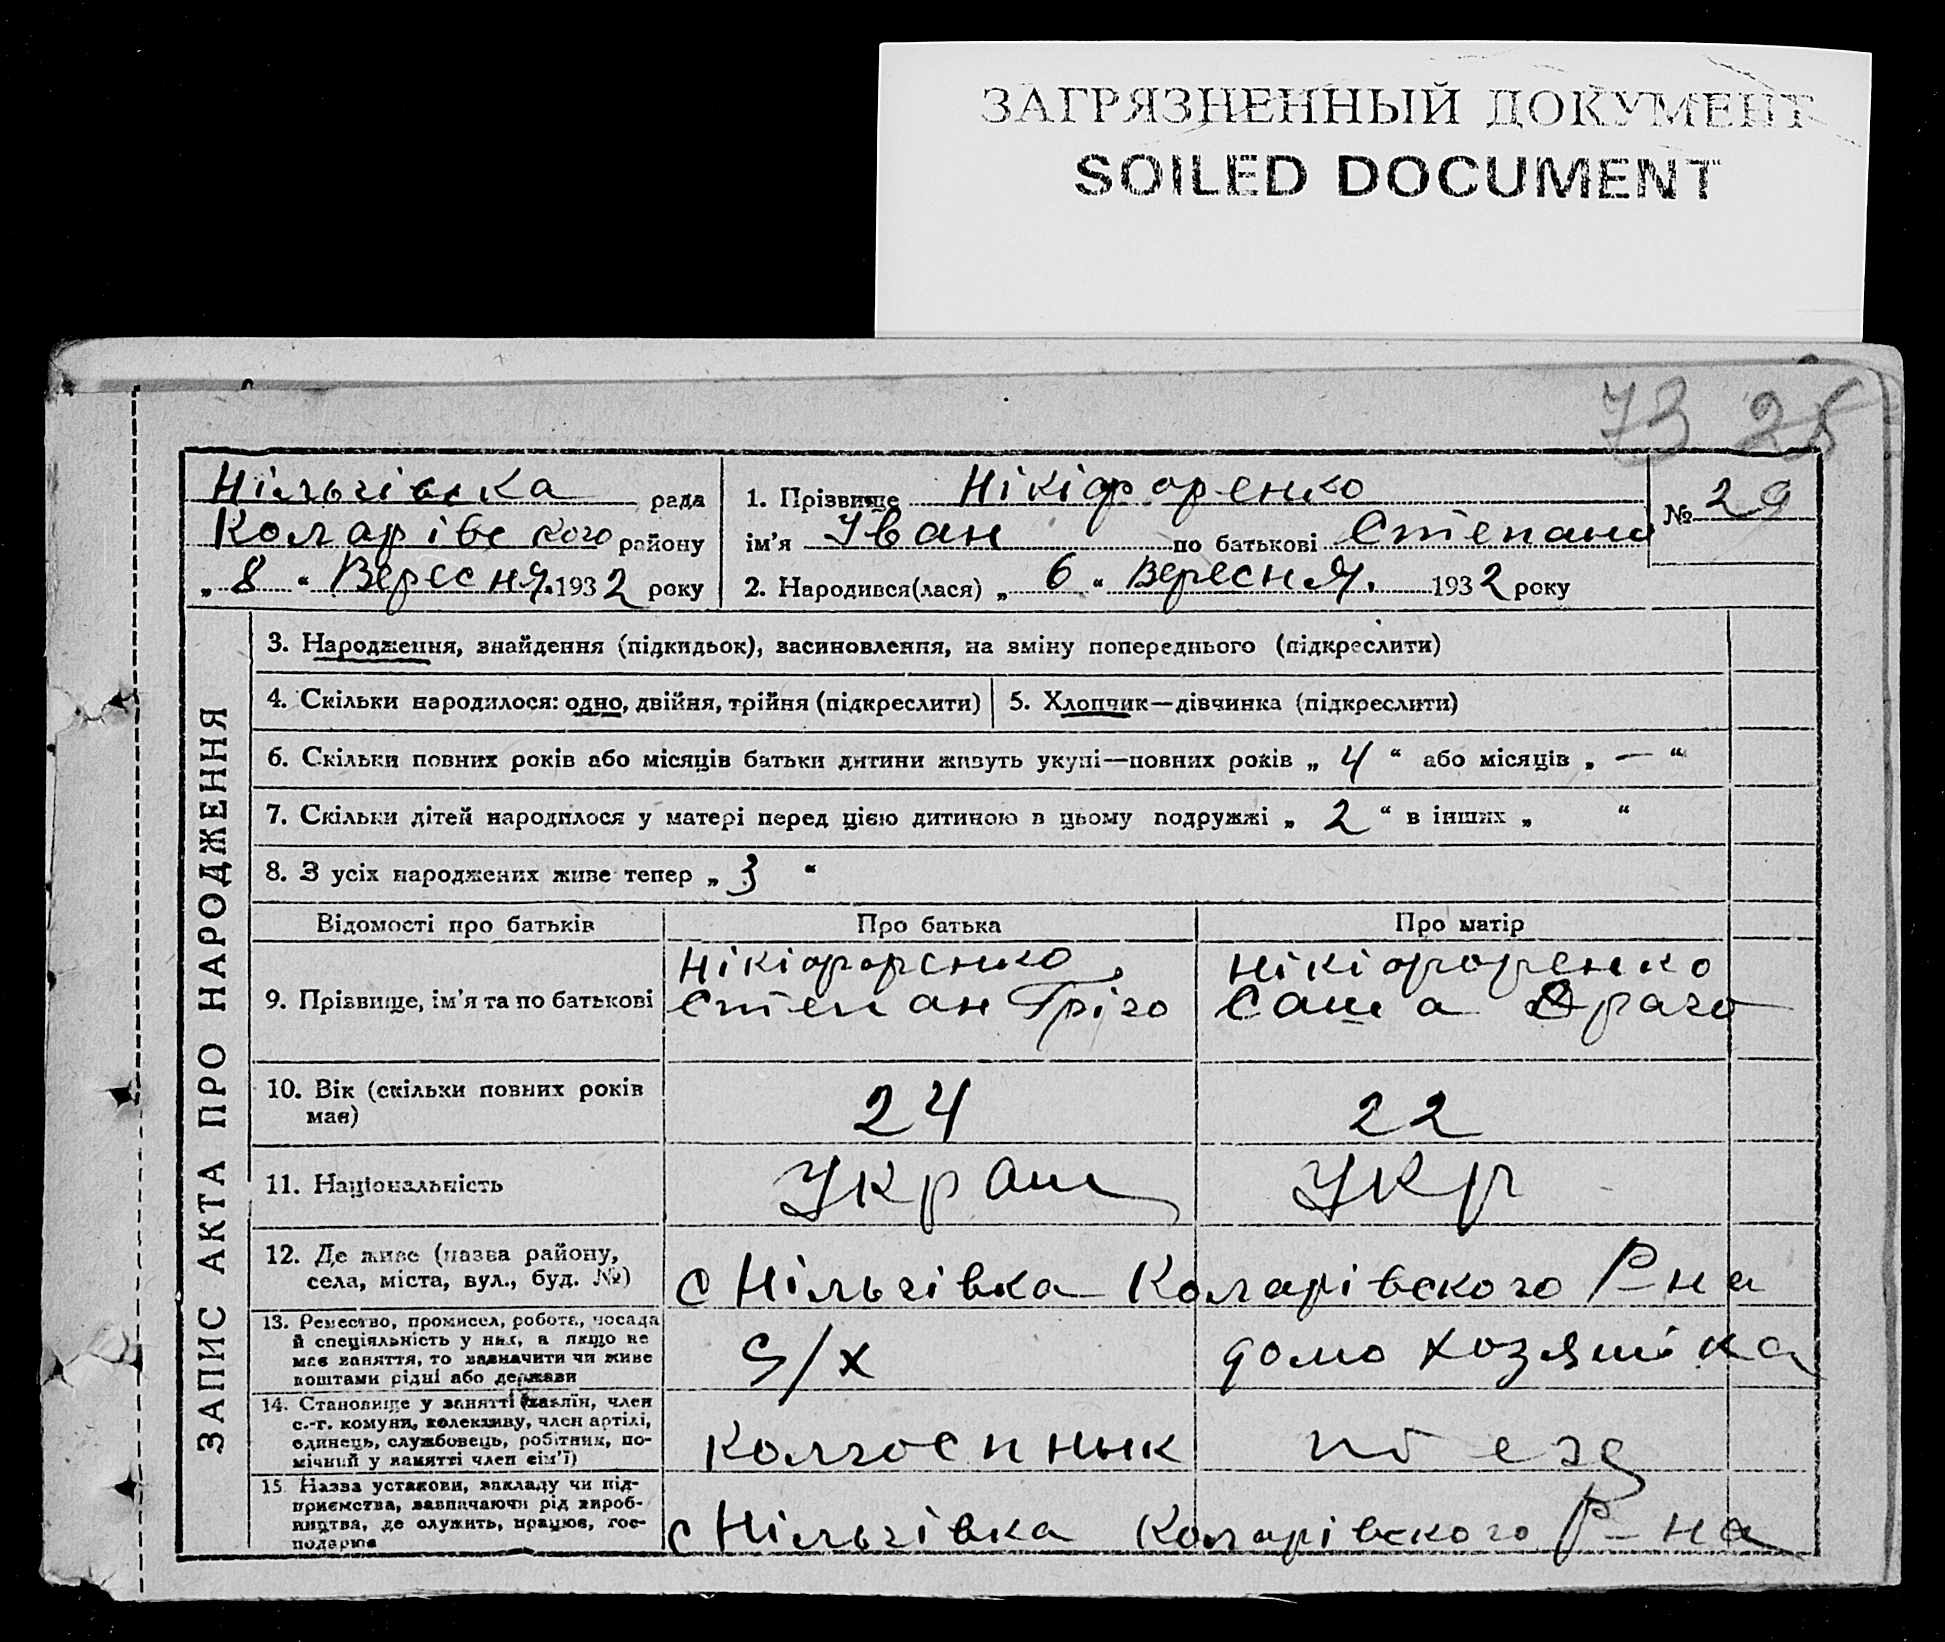 ЗАГРЯЗНЕННЫЙ ДОКУМЕНТ
SOILED DOCUMENT
73 25
Нільгівська рада
Коларівського району
„ 8 “ Вересня. 1932 року
1. Прізвище Нікіфоренко
ім’я Іван по батькові Степани
№ 29
2. Народився(лася) „ 6 “ Вересня. 1932 року
ЗАПИС АКТА ПРО НАРОДЖЕННЯ
3. Народження, знайдення (підкидьок), засиновлення, на зміну попереднього (підкреслити)
4. Скільки народилося: одно, двійня, трійня (підкреслити)
5. Хлопчик—дівчинка (підкреслити)
6. Скільки повних років або місяців батьки дитини живуть укупі—повних років „ 4 “ або місяців „ — “
7. Скільки дітей народилося у матері перед цією дитиною в цьому подружжі „ 2 “ в інших „ “
8. З усіх народжених живе тепер „ 3 “
Відомості про батьків
Про батька
Про матір
9. Прізвище, ім’я та по батькові
Нікіфоренко
Степан Гріго
Нікіфоренко
Саша
10. Вік (скільки повних років має)
24
22
11. Національність
Украин
Укр
12. Де живе (назва району,
села, міста, вул., буд. №)
с Нільгівка Коларівского Р-на
13. Ремество, промисел, робота, посада
й спеціяльність у них, а якщо не
має заняття, то зазначити чи живе
коштами рідні або держави
С/х
домо хозяйка
14. Становище у занятті (хазяїн, член
с.-г. комуни, колективу, член артілі,
одинець, службовець, робітник, по-
мічний у занятті член сім’ї)
Колгоспнык
15. Назва установи, закладу чи під-
приємства, зазначаючи рід вироб-
ництва, де служить, працює, гос-
подарює
с Нільгівка Коларівского Р-на